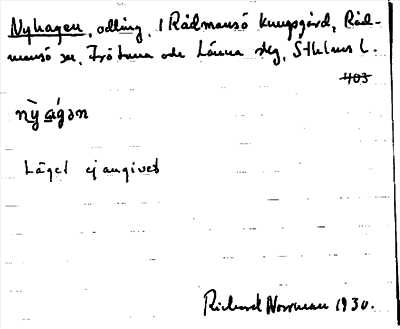 Nyhagen, odling, 1 Rådmansö kungsgård, Råd-
mansö sn, Frötuna och Länna skg, Sthlms l.
403
nỳ ágən
Läget ej angivet
Richard Norrman 1930.